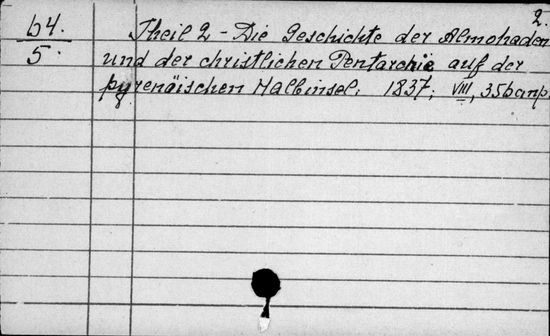 2.
64.
5.
Theil 2 - Die Geschichte der Almohaden
und der christlichen Pentarchie auf der
pyrenäischen Halbinsel. 1837; VIII, 356 anp.